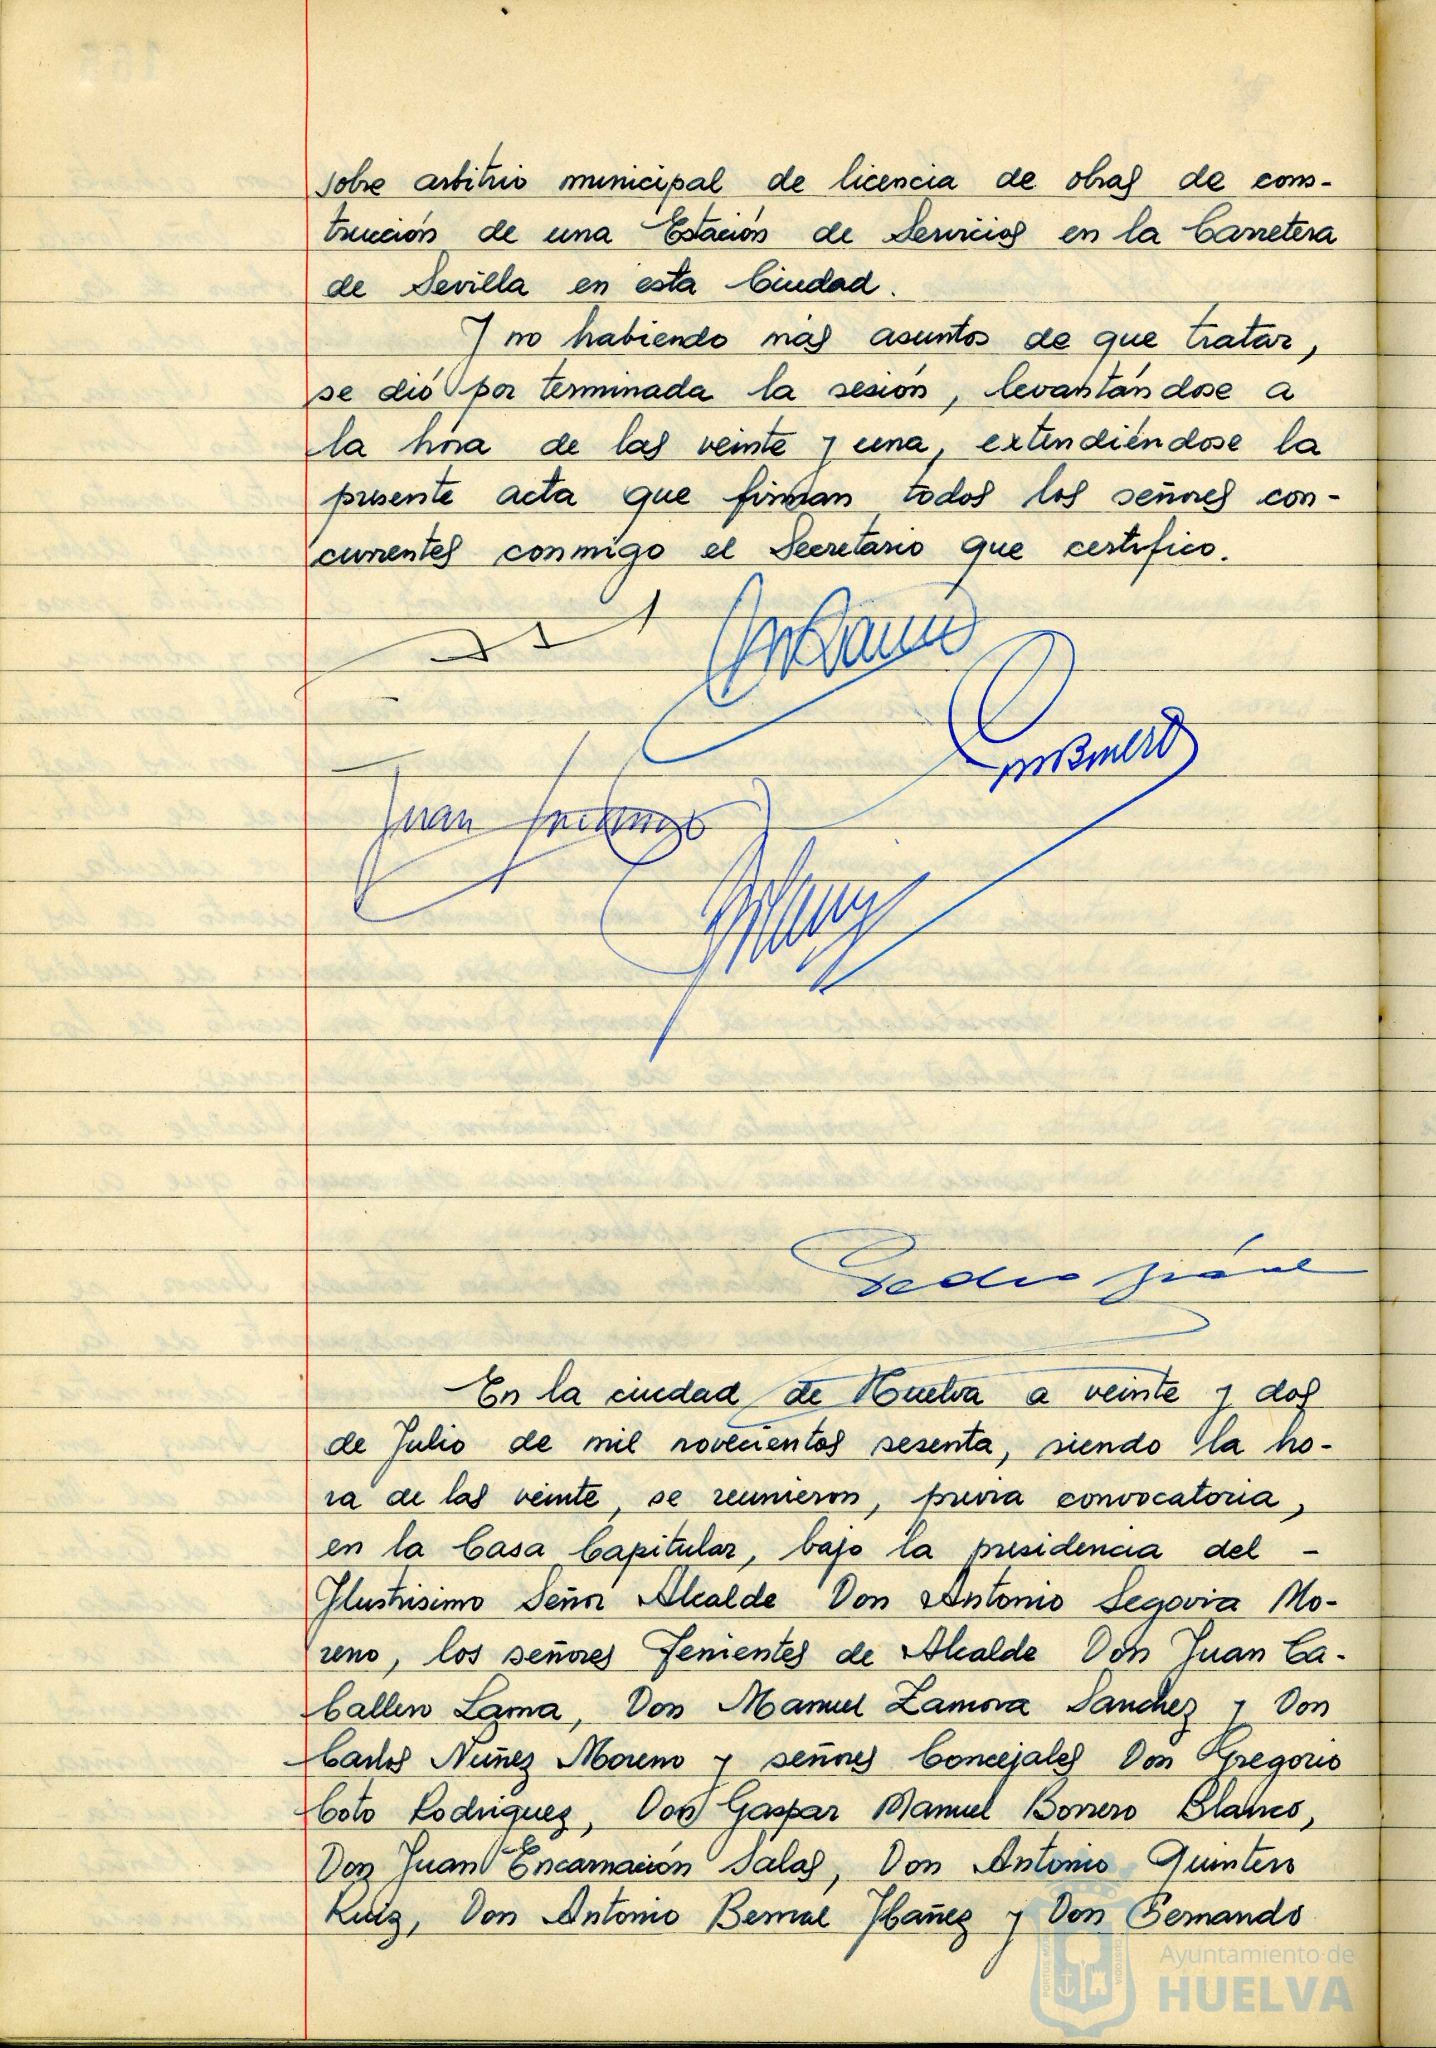 sobre arbitrio municipal de licencia de obras de cons-
trucción de una Estación de Servicios en la Carretera
de Sevilla en esta Ciudad.
Y no habiendo más asuntos de que tratar,
se dió por terminada la sesión, levantándose a
la hora de las veinte y una, extendiéndose la
presente acta que firman todos los señores con-
currentes conmigo el Secretario que certifico.
Juan
Pedro
En la ciudad de Huelva a veinte y dos
de Julio de mil novecientos sesenta, siendo la ho-
ra de las veinte, se reunieron, previa convocatoria,
en la Casa Capitular, bajo la presidencia del -
Ilustrisimo Señor Alcalde Don Antonio Segovia Mo-
reno, los señores Tenientes de Alcalde Don Juan Ca-
ballero Lama, Don Manuel Zamora Sanchez y Don
Carlos Núñez Moreno y señores Concejales Don Gregorio
Coto Rodriguez, Don Gaspar Manuel Borrero Blanco,
Don Juan Encarnación Salas, Don Antonio Quintero
Ruiz, Don Antonio Bernal Ibañez y Don Fernando
Ayuntamiento de
HUELVA